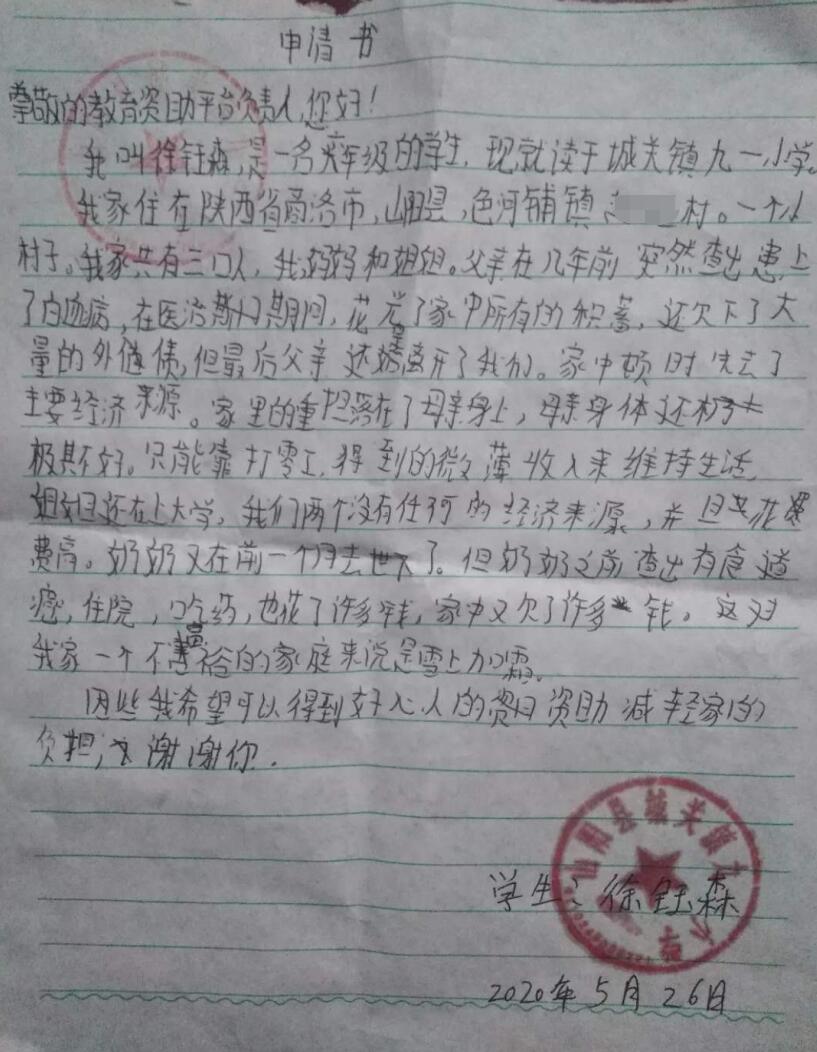 申请书
尊敬的教育资助平台负责人,您好!
我叫徐钰森,是一名六年级的学生,现就读于城关镇九一小学。
我家住在陕西省商洛市,山阳县,色河铺镇 村。一个小
村子。我家共有三口人,我妈妈和姐姐。父亲在几年前突然查出患上
了白血病,在医治期间,花光了家中所有的积蓄,还欠下了大
量的外债,但最后父亲还是离开了我们。家中顿时失去了
主要经济来源。家里的重担落在了母亲身上,母亲身体还
极其不好。只能靠打零工,得到的微薄收入来维持生活,
姐姐还在上大学,我们两个没有任何的经济来源,并且花
费高。奶奶又在前一个月去世了。但奶奶之前查出有食道
癌,住院,吃药,也花了许多钱,家中又欠了许多钱。这对
我家一个不富裕的家庭来说是雪上加霜。
因些我希望可以得到好心人的资助减轻家的
负担,谢谢你.
学生:徐钰森
2020年5月26日
山阳县城关镇九 小学